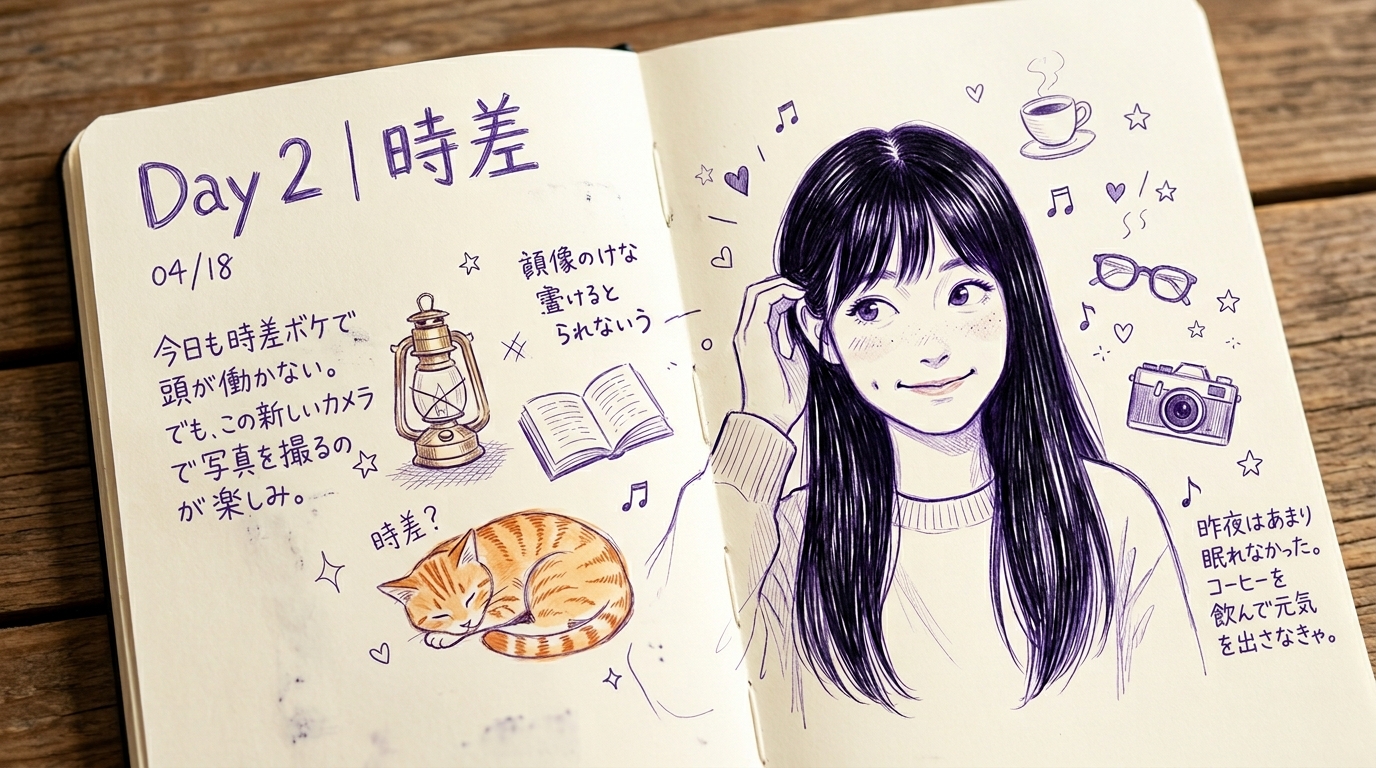 Day 2 | 時差
04/18
今日も時差ボケで
頭が働かない。
でも、この新しいカメラ
で写真を撮るの
が楽しみ。
像のけな
けると
られないう
時差?
昨夜はあまり
眠れなかった。
コーヒーを
飲んで元気
を出さなきゃ。